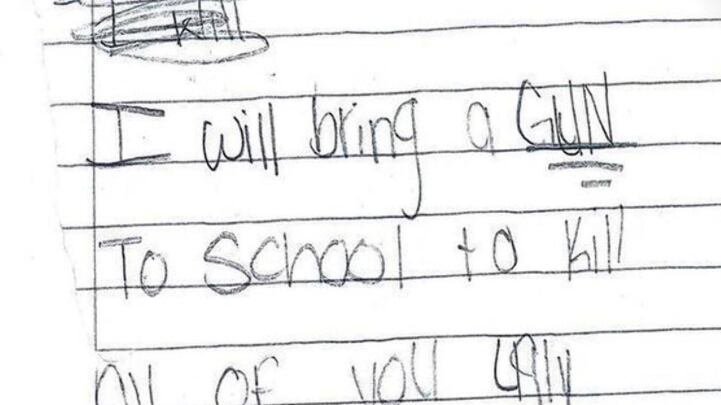 I will
I will bring a GUN
To School to kill
All of you ugly